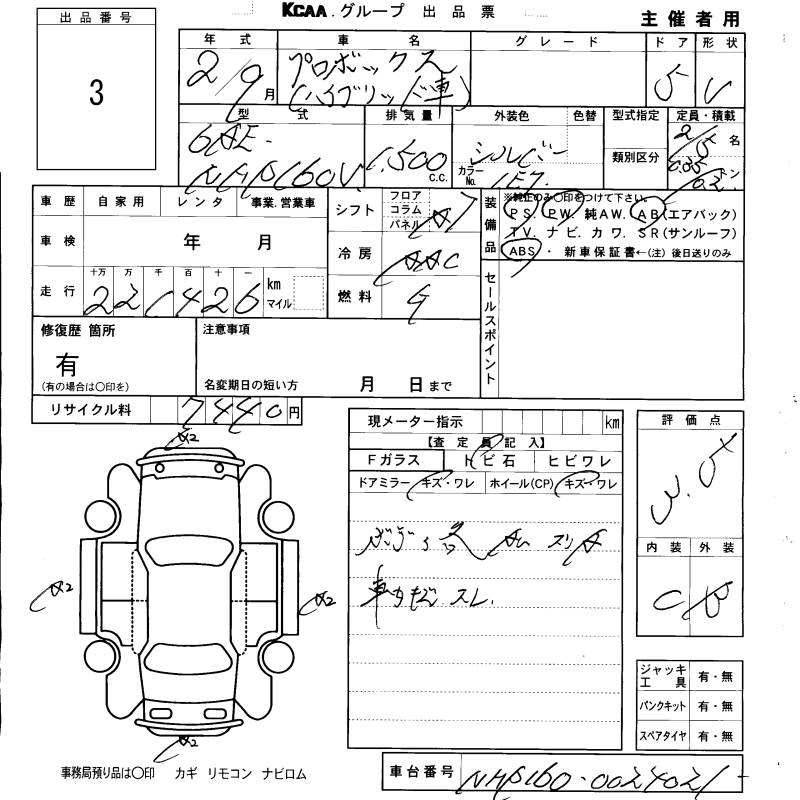 KCAA.グループ 出品票
主催者用
出品番号
3
年式 車名 グレード ドア 形状
2/9月 プロボックス (ハイブリッド車) 5 V
型式 排気量 外装色 色替 型式指定 定員・積載
6AE- NHP160V 1,500 C.C. シルバー カラーNo. 1E7 類別区分 2/5名 0.35/0.2トン
車歴 自家用 レンタ 事業.営業車
車検 年 月
走行 十万 万 千 百 十 一 km マイル
221426
シフト フロア コラム パネル AT
冷房 AAC
燃料 G
装備品 ※純正のみ○印をつけて下さい。
PS. PW. 純AW. AB(エアバック)
TV. ナビ. カワ. SR(サンルーフ)
ABS・ 新車保証書←(注) 後日送りのみ
セールスポイント
修復歴 箇所
有
(有の場合は○印を)
注意事項
名変期日の短い方 月 日まで
リサイクル料 7440円
現メーター指示 km
【査定員記入】
Fガラス トビ石 ヒビワレ
ドアミラー キズ・ワレ ホイール(CP) キズ・ワレ
スリキ
車内 スレ.
評価点
3.5
内装 外装
C B
A2
A2
A2
A2
ジャッキ工具 有・無
パンクキット 有・無
スペアタイヤ 有・無
事務局預り品は○印 カギ リモコン ナビロム
車台番号 NHP160-0024021